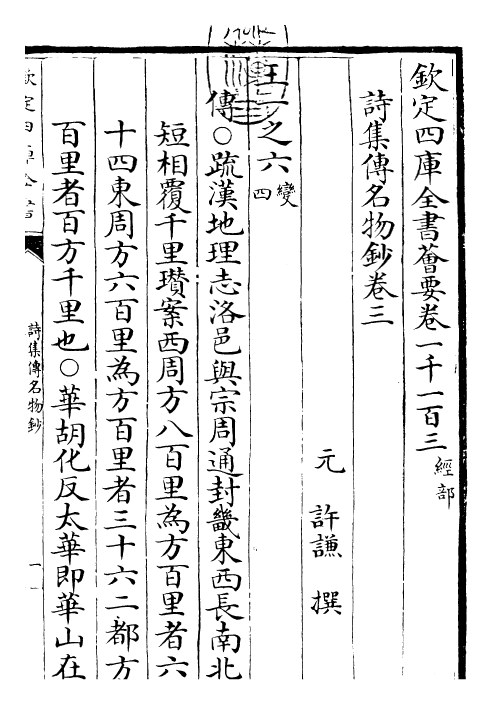 欽定四庫全書薈要卷一千一百三 經部
詩集傳名物鈔卷三
元 許謙 撰
王一之六 變四
傳○疏漢地理志洛邑與宗周通封畿東西長南北
短相覆千里瓚案西周方八百里為方百里者六
十四東周方六百里為方百里者三十六二都方
百里者百方千里也○華胡化反太華即華山在
欽定四庫全書
詩集傳名物鈔
一